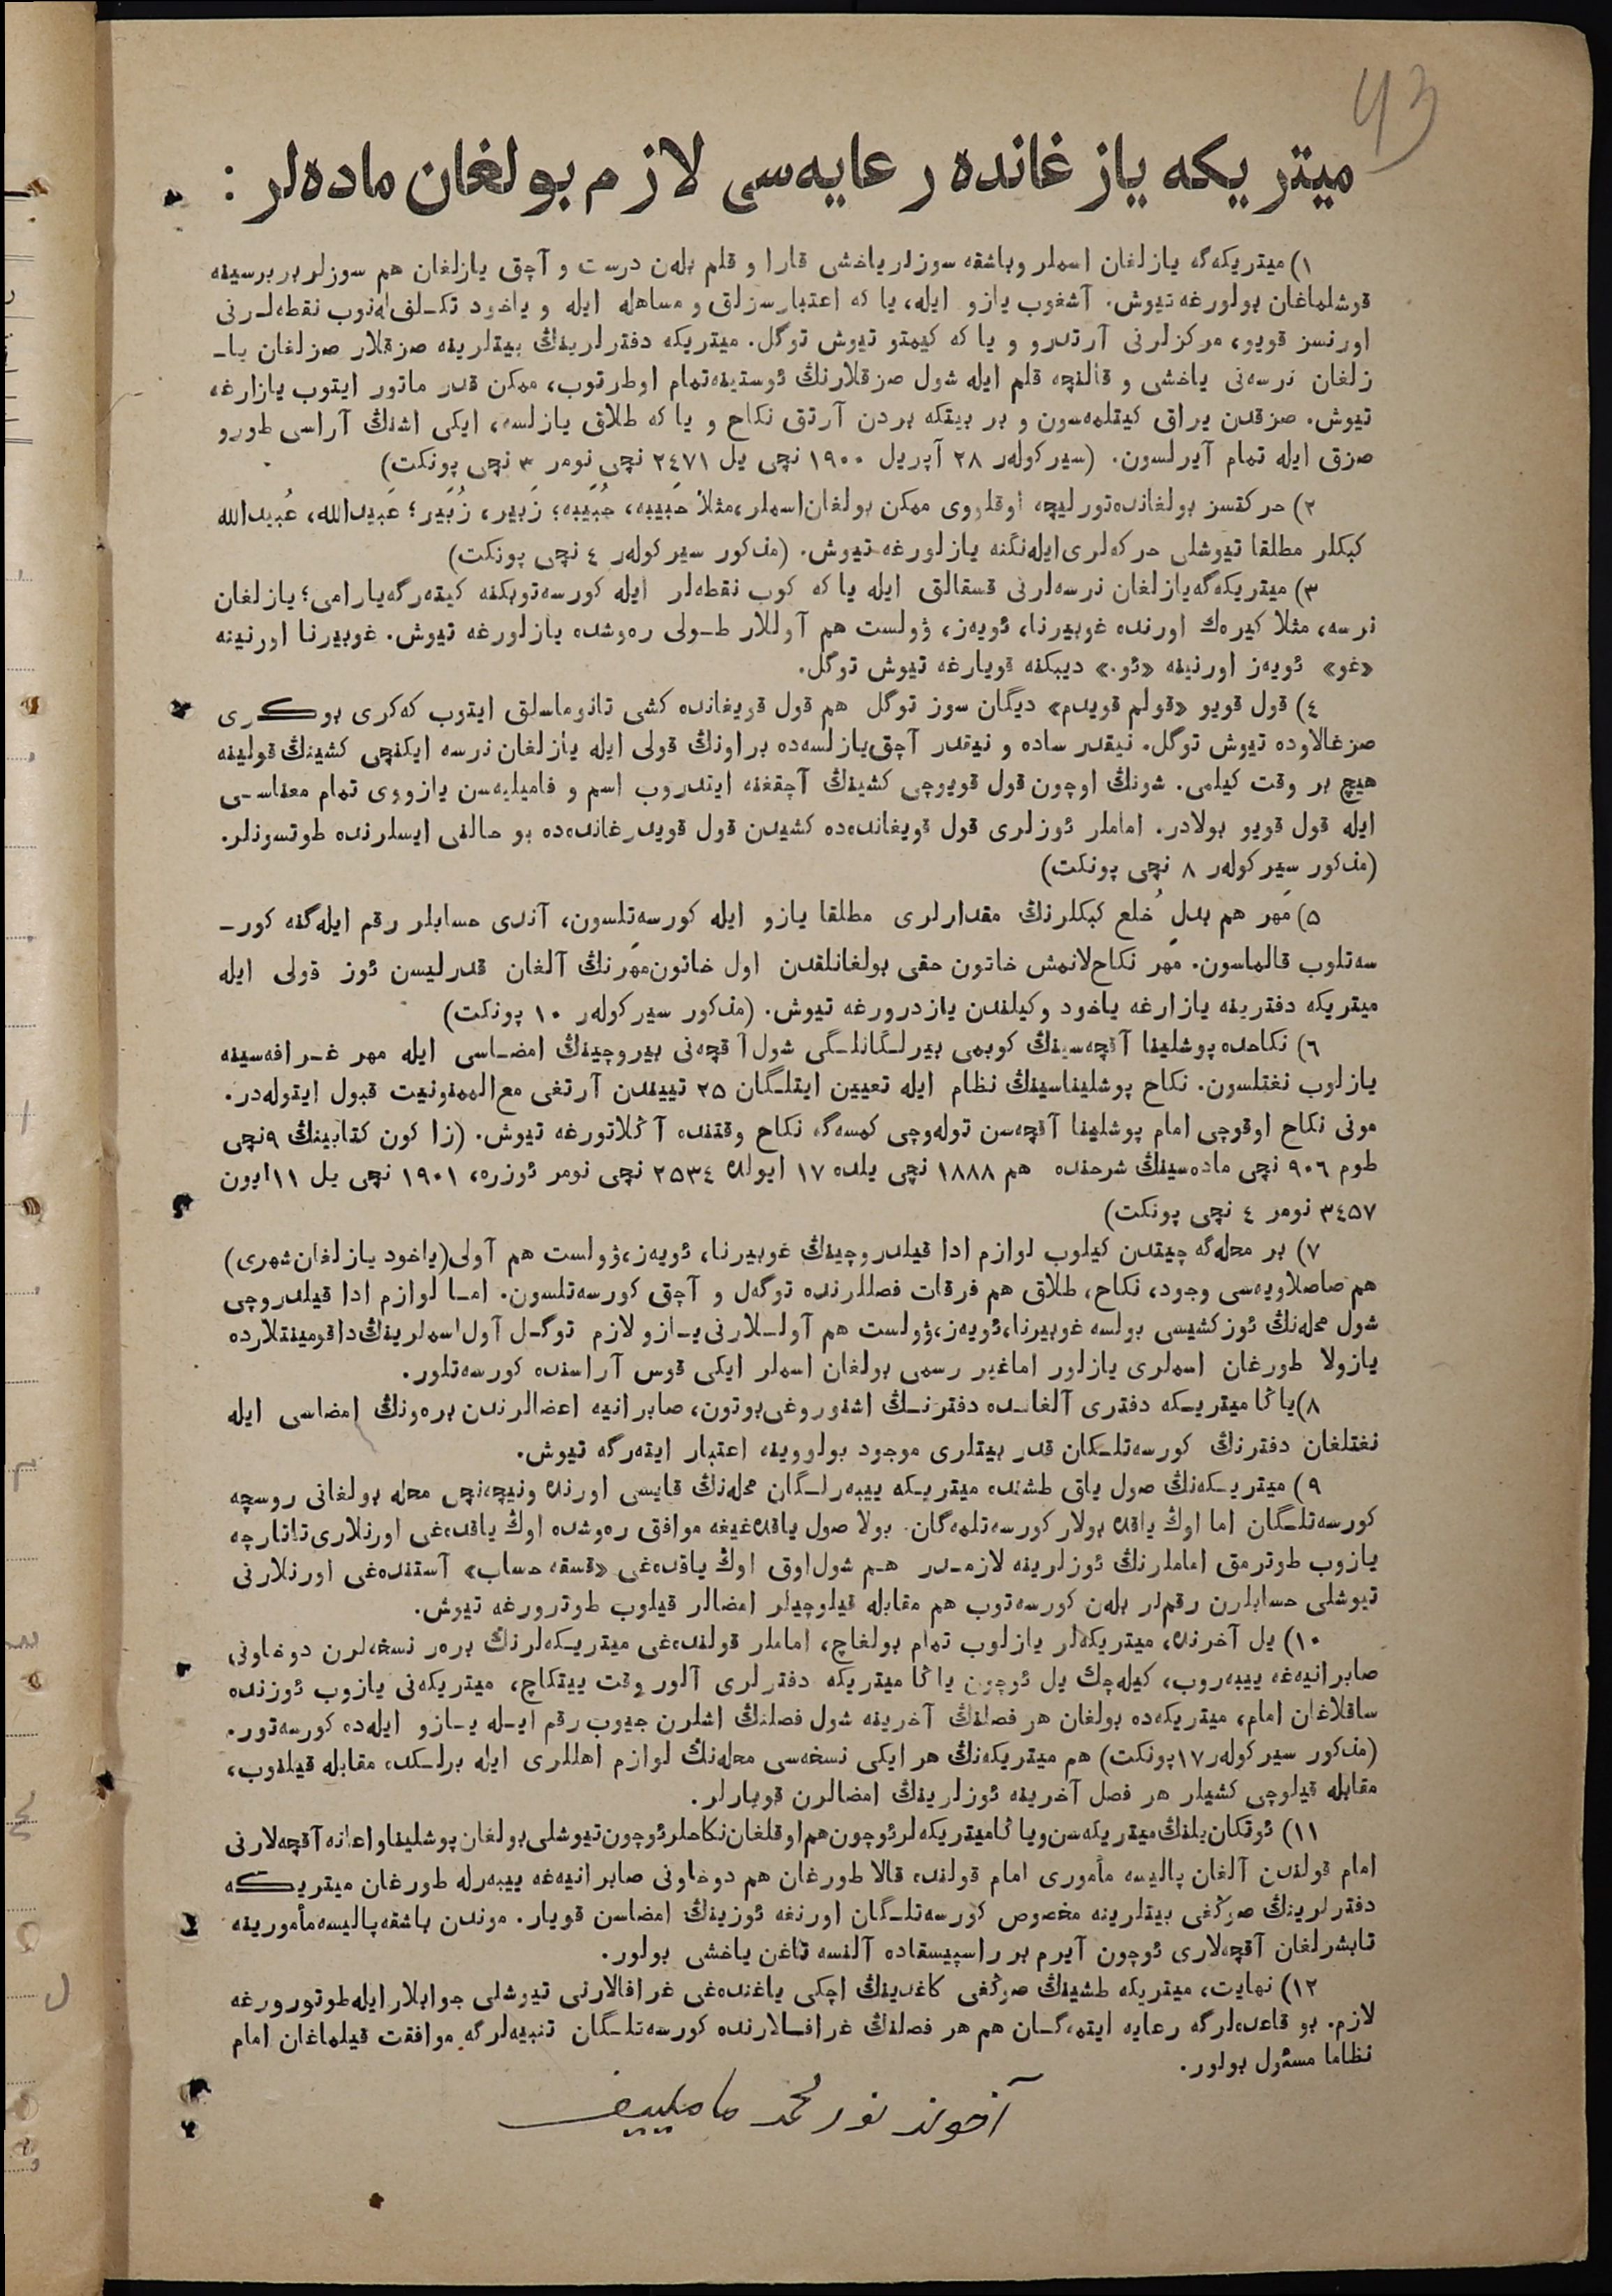 43
میتریكه یازغانده رعایه‌سی لازم بولغان ماده‌لر :
۱) میتریكه‌گه یازلغان اسملر وباشقه سوزلر یاخشی قارا و قلم بله‌ن درست و آچق یازلغان هم سوزلر بربرسینه
قوشلماغان بولورغه تیوش. آشغوب یازو ایله، یا كه اعتبارسزلق و مساهله ایله و یاخود تكـلف‌له‌نوب نقطه‌لـرنی
اورنسز قویو، مركزلرنی آرتدرو و یا كه كیمتو تیوش توگل. میتریكه دفترلرینڭ بیتلرینه صزقلار صزلغان یا-
زلغان نرسه‌نی یاخشی و قالنچه قلم ایله شول صزقلارنڭ ئوستینه‌تمام اوطرتوب، ممكن قدر ماتور ایتوب یازارغه
تیوش. صزقدن یراق كیتلمه‌سون و بر بیتكه بردن آرتق نكاح و یا كه طلاق یازلسه، ایكی اشنڭ آراسی طورو
صزق ایله تمام آیرلسون. (سیركوله‌ر ۲۸ آپریل ۱۹۰۰ نچی یل ۲٤۷۱ نچی نومر ۳ نچی پونكت)
۲) حركتسز بولغانده‌تورلیچه اوقلووی ممكن بولغان‌اسملر،مثلا حَبیبه، حُبَیبه؛ زَبیر، زُبَیر؛ عَبیدالله، عُبیدالله
كبكلر مطلقا تیوشلی حركه‌لری‌ایله‌نگنه یازلورغه تیوش. (مذكور سیركوله‌ر ٤ نچی پونكت)
۳) میتریكه‌گه‌یازلغان نرسه‌لرنی قسقالق ایله یا كه كوب نقطه‌لر ایله كورسه‌توبكنه كیته‌رگه‌یارامی؛ یازلغان
نرسه، مثلا كیره‌ك اورنده غوبیرنا، ئویه‌ز، ۋولست هم آوللار طـولی ره‌وشده یازلورغه تیوش. غوبیرنا اورنینه
«غو» ئویه‌ز اورنینه «ئو.» دیبكنه قویارغه تیوش توگل.
٤) قول قویو «قولم قویدم» دیگان سوز توگل هم قول قویغانده كشی تانوماسلق ایتوب كه‌كری بوكـری
صزغالاوده تیوش توگل. نیقدر ساده و نیقدر آچق‌یازلسه‌ده براونڭ قولی ایله یازلغان نرسه ایكنچی كشینڭ قولینه
هیچ بر وقت كیلمی. شونڭ اوچون قول قویوچی كشینڭ آچقغنه ایتدروب اسم و فامیلیه‌سن یازووی تمام معناسـی
ایله قول قویو بولادر. اماملر ئوزلری قول قویغانده‌ده كشیدن قول قویدرغانده‌ده بو حالنی ایسلرنده طوتسونلر.
(مذكور سیركوله‌ر ۸ نچی پونكت)
۵) مَهر هم بدل خُلع كبكلرنڭ مقدارلری مطلقا یازو ایله كورسه‌تلسون، آندی حسابلر رقم ایله‌گنه كور-
سه‌تلوب قالماسون. مَهر نكاح‌لانمش خاتون حقی بولغانلقدن اول خاتون‌مَهرنڭ آلغان قدرلیسن ئوز قولی ایله
میتریكه دفترینه یازارغه یاخود وكیلندن یازدرورغه تیوش. (مذكور سیركوله‌ر ۱۰ پونكت)
٦) نكاحده پوشلینا آقچه‌سینڭ كوبمی بیرلـگانلـگی شول‌آقچه‌نی بیروچینڭ امضـاسی ایله مهر غـرافه‌سینه
یازلوب نغتلسون. نكاح پوشلیناسینڭ نظام ایله تعیین ایتلـگان ۲۵ تییندن آرتغی مع‌الممنونیت قبول ایتوله‌در.
مونی نكاح اوقوچی امام پوشلینا آقچه‌سن توله‌وچی كمسه‌گه نكاح وقتنده آڭلاتورغه تیوش. (زاكون كتابینڭ ۹نچی
طوم ۹۰٦ نچی ماده‌سینڭ شرحنده هم ۱۸۸۸ نچی یلده ۱۷ ایولده ۲۵۳٤ نچی نومر ئوزره، ۱۹۰۱ نچی یل ۱۱ایون
۳٤۵۷ نومر ٤ نچی پونكت)
۷) بر محله‌گه چیتدن كیلوب لوازم ادا قیلدروچینڭ غوبیرنا، ئویه‌ز،ۋولست هم آولی(یاخود یازلغان‌شهری)
هم صاصلاویه‌سی وجود، نكاح، طلاق هم فرقات فصللرنده توگه‌ل و آچق كورسه‌تلسون. امـا لوازم ادا قیلدروچی
شول محله‌نڭ ئوزكشیسی بولسه غوبیرنا،ئویه‌ز،ۋولست هم آولـلارنی‌یـازو لازم توگـل آول‌اسملرینڭ‌داقومینتلارده
یازولا طورغان اسملری یازلور اماغیر رسمی بولغان اسملر ایكی قوس آراسنده كورسه‌تلور.
۸)یاڭا میتریـكه دفتری آلغانـده دفترنـڭ اشنوروغی‌بوتون، صابرانیه اعضالرندن بره‌ونڭ امضاسی ایله
نغتلغان دفترنڭ كورسه‌تلـكان قدر بیتلری موجود بولووینه اعتبار ایته‌رگه تیوش.
۹) میتریـكه‌نڭ صول یاق طشنده میتریـكه ییبه‌رلـگان محله‌نڭ قایسی اورنده ونیچه‌نچی محله بولغانی روسچه
كورسه‌تلـگان اما اوڭ یاقده بولار كورسه‌تلمه‌گان. بولا صول یاقده‌غیغه موافق ره‌وشده اوڭ یاقده‌غی اورنلاری‌تاتارچه
یازوب طوترمق اماملرنڭ ئوزلرینه لازمـدر هـم شول‌اوق اوڭ یاقده‌غی «قسقه حساب» آستنده‌غی اورنلارنی
تیوشلی حسابلرن رقملر بله‌ن كورسه‌توب هم مقابله قیلوچیلر امضالر قیلوب طوترورغه تیوش.
۱۰) یل آخرنده، میتریكه‌لر یازلوب تمام بولغاچ، اماملر قولنده‌غی میتریـكه‌لرنڭ بره‌ر نسخه‌لرن دوخاونی
صابرانیه‌غه ییبه‌روب، كیله‌چك یل ئوچون یاڭا میتریكه دفترلری آلور وقت ییتكاچ، میتریكه‌نی یازوب ئوزنده
ساقلاغان امام، میتریكه‌ده بولغان هر فصلنڭ آخرینه شول فصلنڭ اشلرن جیوب رقم ایـله یـازو ایله‌ده كورسه‌تور.
(مذكور سیركوله‌ر ۱۷پونكت) هم میتریكه‌نڭ هر ایكی نسخه‌سی محله‌نڭ لوازم اهللری ایله برلـكده مقابله قیلنوب،
مقابله قیلوچی كشیلر هر فصل آخرینه ئوزلرینڭ امضالرن قویارلر.
۱۱) ئوتكان‌یلنڭ‌میتریكه‌سن‌ویاڭامیتریكه‌لرئوچون‌هم‌اوقلغان‌نكاحلرئوچون‌تیوشلی‌بولغان‌پوشلیناواعانه‌آقچه‌لارنی
امام قولندن آلغان پالیسه مأموری امام قولنده قالا طورغان هم دوخاونی صابرانیه‌غه ییبه‌رله طورغان میتریـكه
دفترلرینڭ صوڭغی بیتلرینه مخصوص كورسه‌تلـگان اورنغه ئوزینڭ امضاسن قویار. موندن باشقه‌پالیسه‌مأمورینه
تابشرلغان آقچه‌لاری ئوچون آیرم بر راسپیسقاده آلنسه تاغن یاخشی بولور.
۱۲) نهایت، میتریكه طشینڭ صوڭغی كاغدینڭ اچكی یاغنده‌غی غرافالارنی تیوشلی جوابلار ایله‌طوتورورغه
لازم. بو قاعده‌لرگه رعایه ایتمه‌گـان هم هر فصلنڭ غرافـالارنده كورسه‌تلـگان تنبیه‌لرگه موافقت قیلماغان امام
نظاما مسئول بولور.
آخوند نورمحمد مامليیف